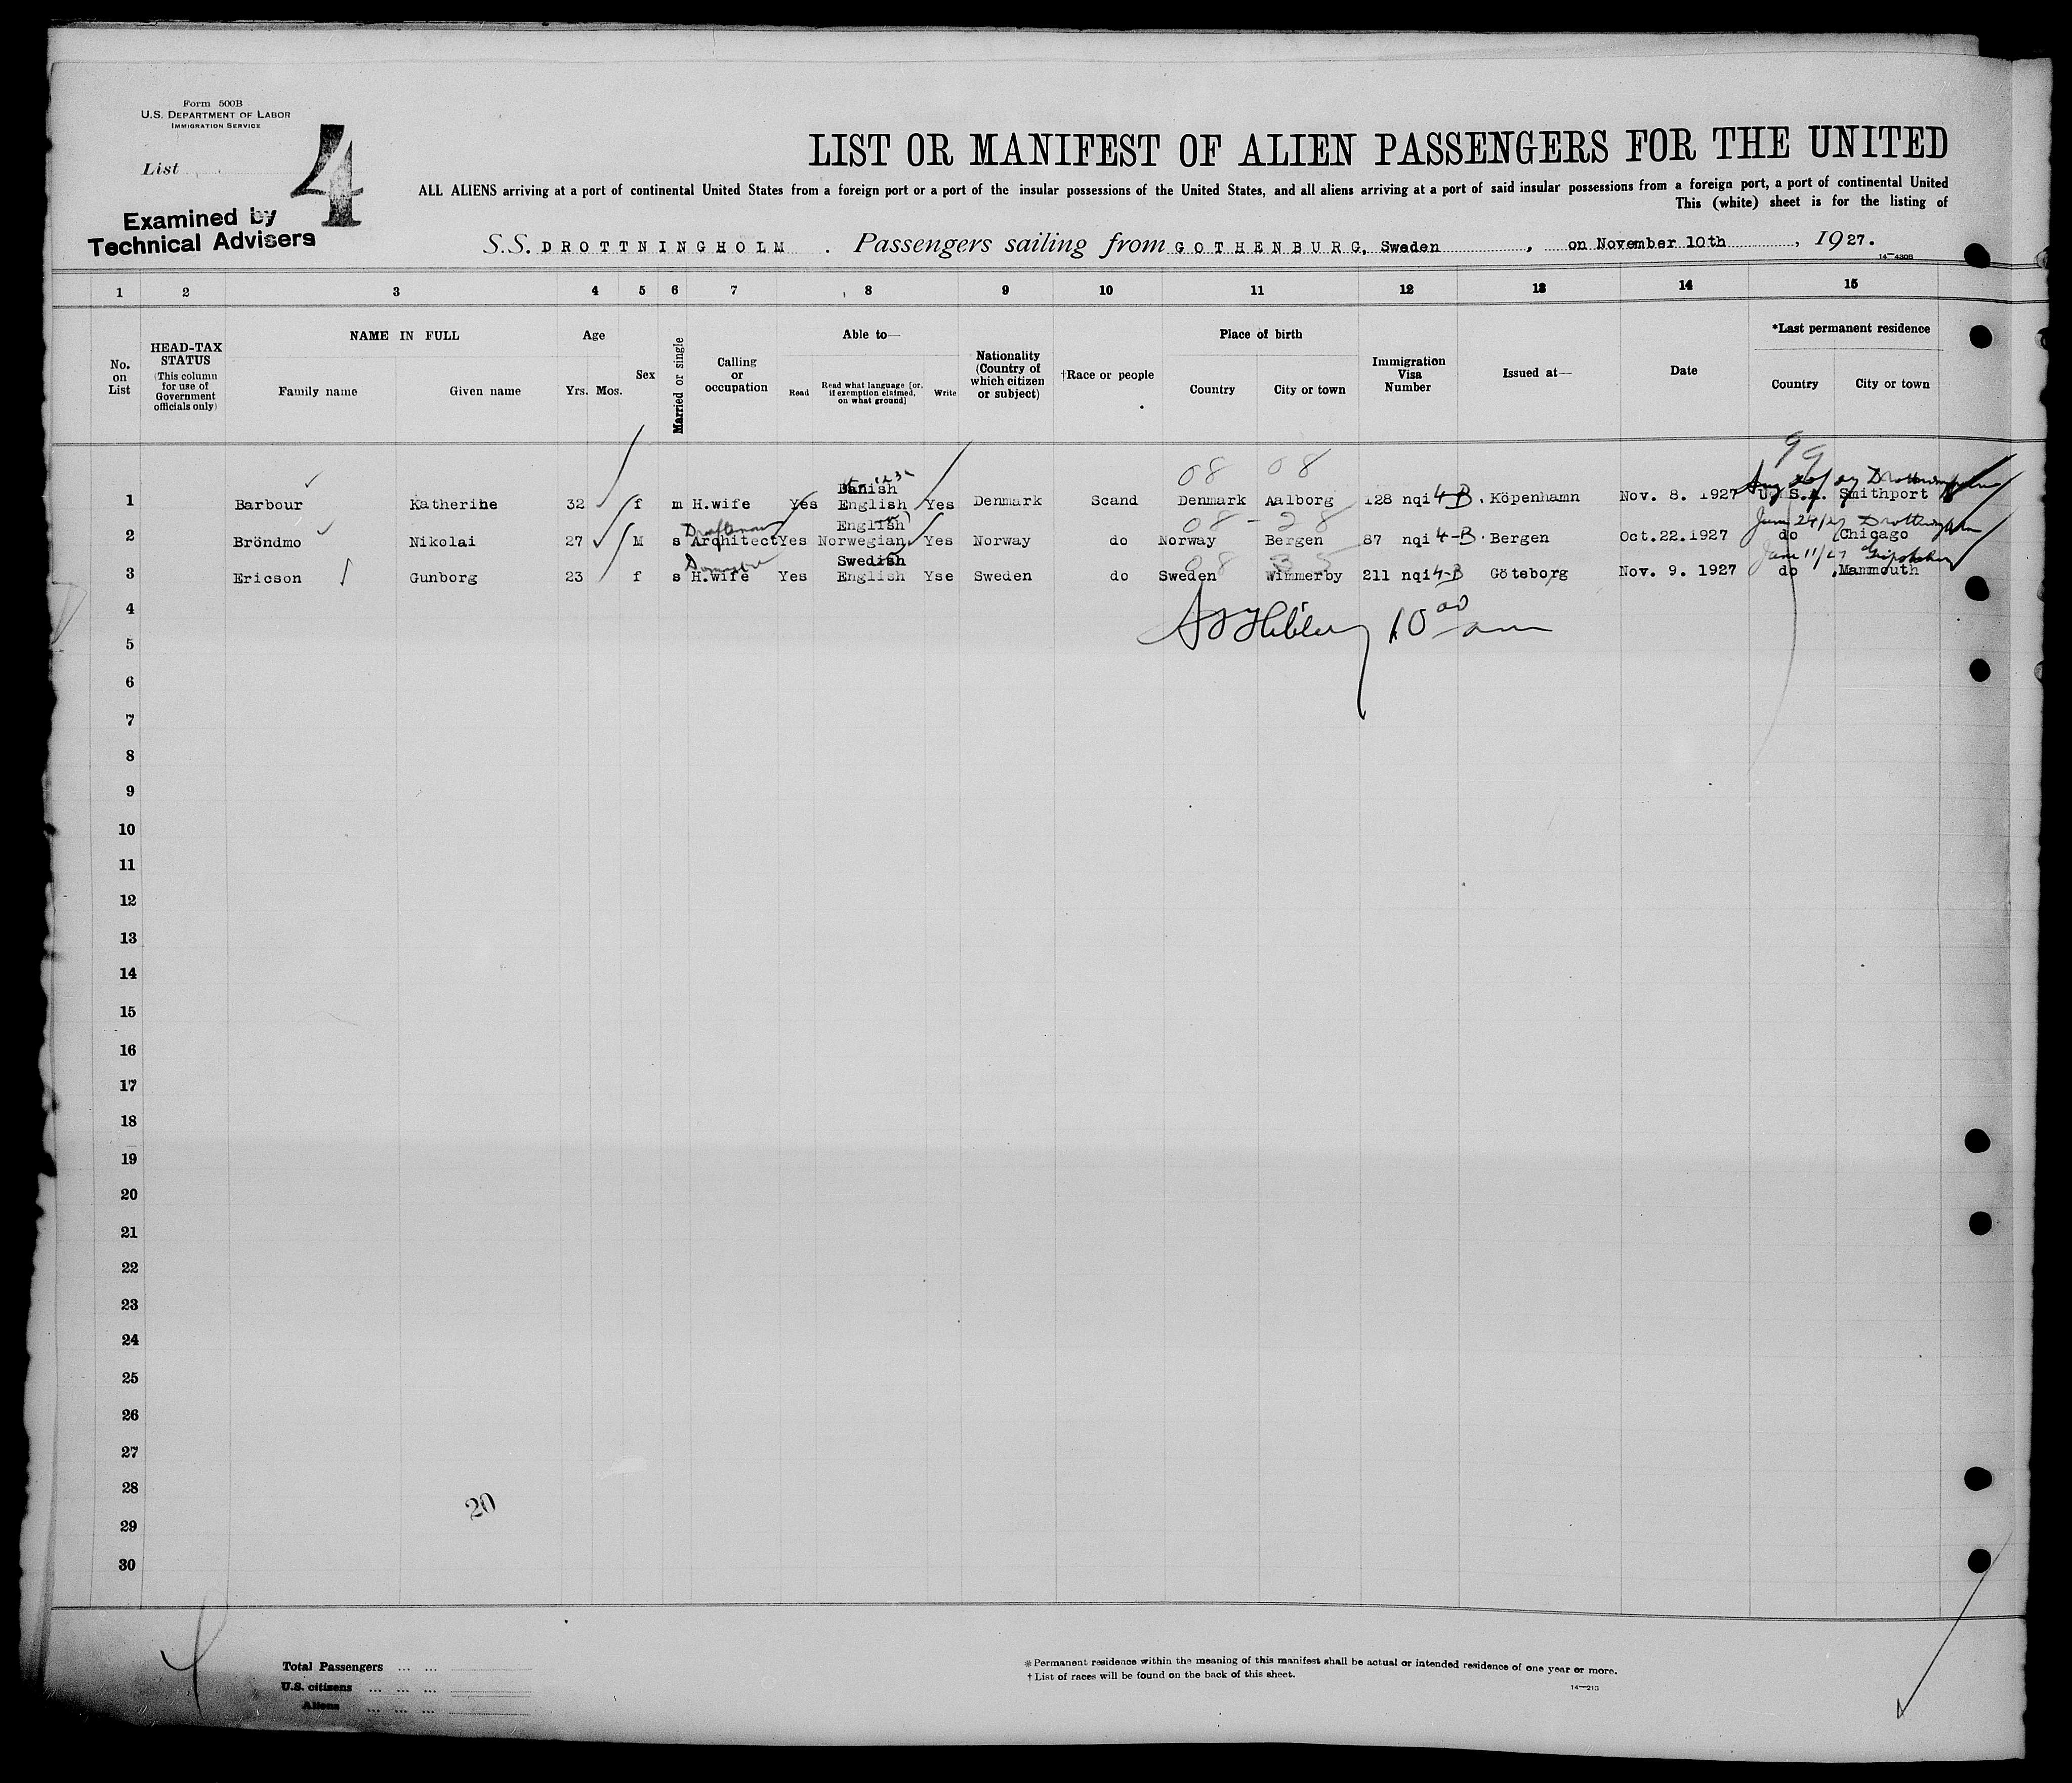 Form 500B
U.S. DEPARTMENT OF LABOR
IMMIGRATION SERVICE
List
4
Examined by
Technical Advisers
LIST OR MANIFEST OF ALIEN PASSENGERS FOR THE UNITED
ALL ALIENS arriving at a port of continental United States from a foreign port or a port of the insular possessions of the United States, and all aliens arriving at a port of said insular possessions from a foreign port, a port of continental United
This (white) sheet is for the listing of
S.S. DROTTNINGHOLM . Passengers sailing from GOTHENBURG, Sweden , on November 10th , 1927.
14—4308
1 2 3 4 5 6 7 8 9 10 11 12 13 14 15
No. on List
HEAD-TAX STATUS (This column for use of Government officials only)
NAME IN FULL
Family name Given name
Age
Yrs. Mos.
Sex
Married or single
Calling or occupation
Able to—
Read Read what language [or, if exemption claimed, on what ground] Write
Nationality (Country of which citizen or subject)
†Race or people
Place of birth
Country City or town
Immigration Visa Number
Issued at—
Date
*Last permanent residence
Country City or town
99
08 08
Danish
1 Barbour Katherine 32 f m H.wife Yes English Yes Denmark Scand Denmark Aalborg 128 nqi 4-B . Köpenhamn Nov. 8. 1927 U.S.A. Smithport
Draftsman English 08 - 28 June 24/27 Drottningholm
2 Bröndmo Nikolai 27 M s Architect Yes Norwegian Yes Norway do Norway Bergen 87 nqi 4-B . Bergen Oct.22.1927 do Chicago
Domestic Swedish 08 35 June 11/27 Gripsholm
3 Ericson Gunborg 23 f s H.wife Yes English Yse Sweden do Sweden Wimmerby 211 nqi 4-B Göteborg Nov. 9. 1927 do Mammouth
4
10 00 am
5
6
7
8
9
10
11
12
13
14
15
16
17
18
19
20
21
22
23
24
25
26
27
28
20
29
30
Total Passengers ... ...
U.S. citizens ... ... ...
Aliens ... ... ...
*Permanent residence within the meaning of this manifest shall be actual or intended residence of one year or more.
†List of races will be found on the back of this sheet.
14—213